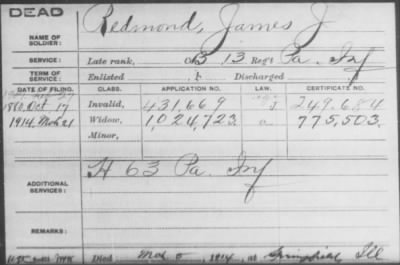 DEAD
NAME OF SOLDIER: Redmond, James J
SERVICE: Late rank, B 13 Reg't Pa. Inf
TERM OF SERVICE: Enlisted , 1 Discharged , 1
DATE OF FILING. CLASS. APPLICATION NO. LAW. CERTIFICATE NO.
1880, Oct 17 Invalid, 431,669 249,684
1914, Mch 21 Widow, 1,024,723 a 775,503.
Minor,
ADDITIONAL SERVICES: H 63 Pa. Inf
REMARKS:
Died 1914, at Springfield Ill